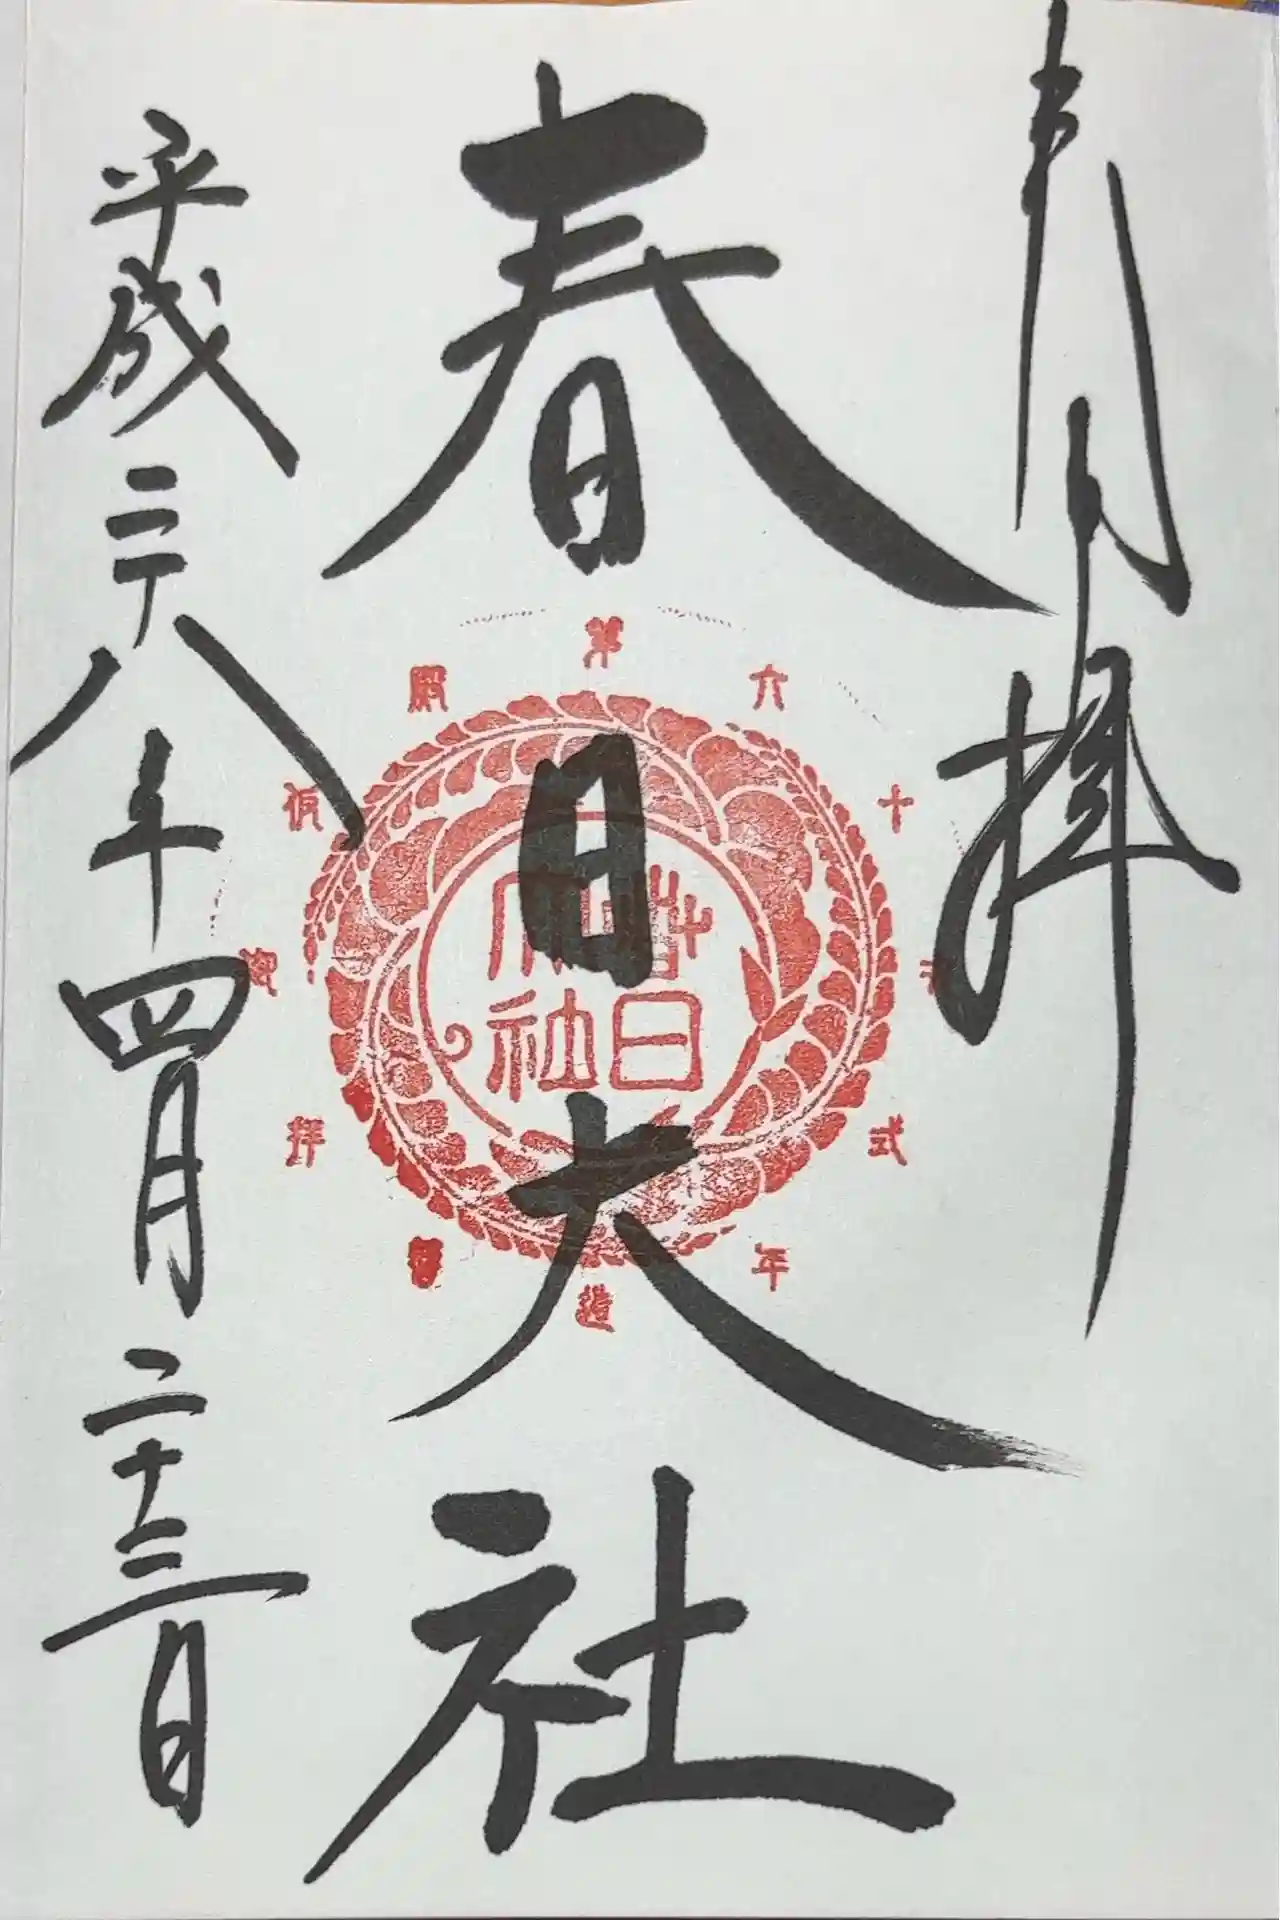 奉拝
春日大社
平成二十八年四月二十三日
春日
大社
第六十次式年造替
仮殿